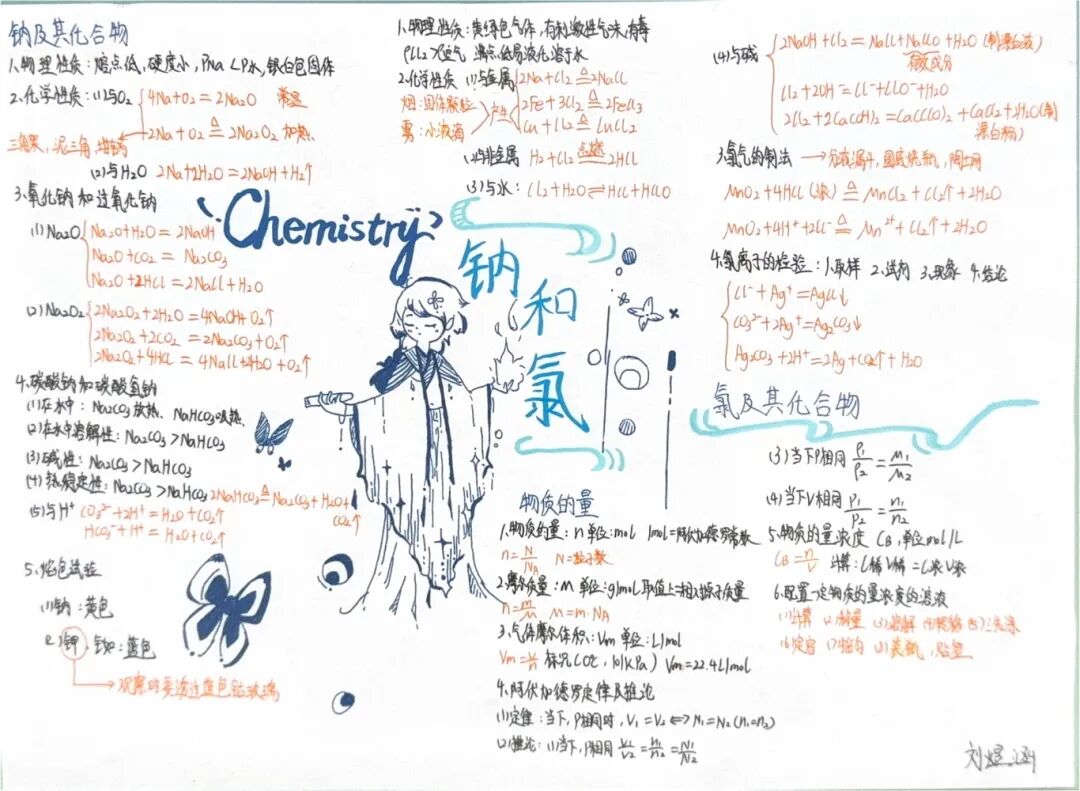 钠及其化合物
1.物理性质：熔点低，硬度小，ρNa<ρ水，银白色固体
2.化学性质：(1)与O₂
4Na+O₂=2Na₂O 常温
2Na+O₂≜2Na₂O₂ 加热
三角架，泥三角，坩埚
(2)与H₂O 2Na+2H₂O=2NaOH+H₂↑
3.氧化钠和过氧化钠
(1)Na₂O
Na₂O+H₂O=2NaOH
Na₂O+CO₂=Na₂CO₃
Na₂O+2HCl=2NaCl+H₂O
(2)Na₂O₂
2Na₂O₂+2H₂O=4NaOH+O₂↑
2Na₂O₂+2CO₂=2Na₂CO₃+O₂↑
2Na₂O₂+4HCl=4NaCl+2H₂O+O₂↑
4.碳酸钠和碳酸氢钠
(1)在水中：Na₂CO₃放热、NaHCO₃吸热
(2)在水中溶解性：Na₂CO₃>NaHCO₃
(3)碱性：Na₂CO₃>NaHCO₃
(4)热稳定性：Na₂CO₃>NaHCO₃ 2NaHCO₃≜Na₂CO₃+H₂O+
CO₂↑
(5)与H⁺ CO₃²⁻+2H⁺=H₂O+CO₂↑
HCO₃⁻+H⁺=H₂O+CO₂↑
5.焰色试验
(1)钠：黄色
(2)钾、铷：蓝色
观察时要透过蓝色钴玻璃
Chemistry
钠和氯
1.物理性质：黄绿色气体，有刺激性气味，有毒
ρCl₂>空气 沸点低易液化溶于水
2.化学性质 (1)与金属
2Na+Cl₂≜2NaCl
2Fe+3Cl₂≜2FeCl₃
Cu+Cl₂≜CuCl₂
烟：固体颗粒
雾：小液滴
产生
(2)与非金属 H₂+Cl₂ 点燃 2HCl
(3)与水：Cl₂+H₂O⇌HCl+HClO
(4)与碱
2NaOH+Cl₂=NaCl+NaClO+H₂O(制漂白液)
有效成分
Cl₂+2OH=Cl⁻+ClO⁻+H₂O
2Cl₂+2Ca(OH)₂=Ca(ClO)₂+CaCl₂+2H₂O(制
漂白粉)
3.氯气的制法 →分液漏斗，圆底烧瓶，陶土网
MnO₂+4HCl(浓)≜MnCl₂+Cl₂↑+2H₂O
MnO₂+4H⁺+2Cl⁻≜Mn²⁺+Cl₂↑+2H₂O
4.氯离子的检验：1.取样 2.试剂 3.现象 4.结论
Cl⁻+Ag⁺=AgCl↓
CO₃²⁻+2Ag⁺=Ag₂CO₃↓
Ag₂CO₃+2H⁺=2Ag+CO₂↑+H₂O
氯及其化合物
物质的量
1.物质的量：n 单位：mol 1mol=阿伏加德罗常数
n=N/NA N=粒子数
2.摩尔质量：M 单位：g/mol 取值上=相对原子质量
n=m/M M=m·NA
3.气体摩尔体积：Vm 单位：L/mol
标况(0℃，101KPa) Vm=22.4L/mol
4.阿伏加德罗定律及推论
(1)定律：当T，P相同时，V₁=V₂⟺N₁=N₂(n₁=n₂)
(2)推论：(1)当T，P相同 V₁/V₂=n₁/n₂=N₁/N₂
(3)当TP相同 ρ₁/ρ₂=M₁/M₂
(4)当TV相同 P₁/P₂=n₁/n₂
5.物质的量浓度 CB，单位mol/L
CB=n/V 计算：C稀V稀=C浓V浓
6.配置一定物质的量浓度的溶液
(1)计算 (2)称量 (3)溶解 (4)转移 (5)洗涤
(6)定容 (7)摇匀 (8)装瓶，贴签